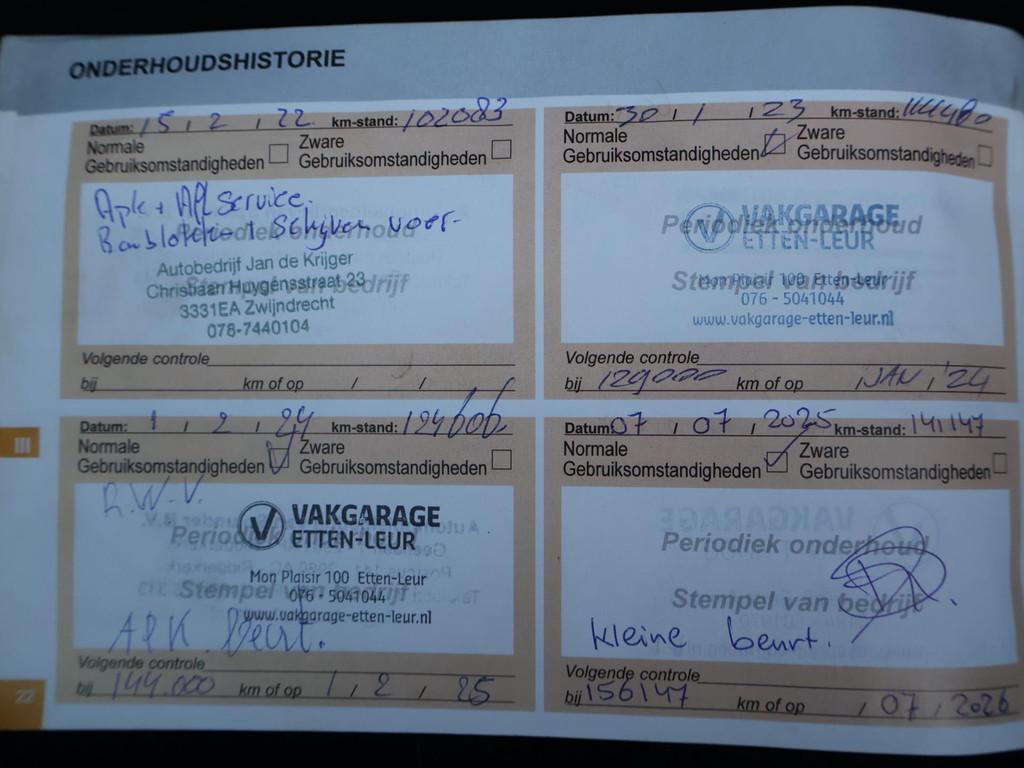 ONDERHOUDSHISTORIE
Datum: 15 / 2 / 22 km-stand: 102083
Normale Gebruiksomstandigheden
Zware Gebruiksomstandigheden
Apk + Service.
Periodiek onderhoud
+ Schijven voor
Autobedrijf Jan de Krijger
Christiaan Huygensstraat 23
Stempel van bedrijf
3331EA Zwijndrecht
078-7440104
Volgende controle
bij km of op / /
Datum: 30 / 1 / 23 km-stand:
Normale Gebruiksomstandigheden
Zware Gebruiksomstandigheden
VAKGARAGE
Periodiek onderhoud
ETTEN-LEUR
Mon Plaisir 100 Etten-Leur
Stempel van bedrijf
076 - 5041044
www.vakgarage-etten-leur.nl
Volgende controle
bij 129000 km of op / JAN / '24
Datum: 1 / 2 / 24 km-stand: 124606
Normale Gebruiksomstandigheden
Zware Gebruiksomstandigheden
R.W.V.
VAKGARAGE
Periodiek
ETTEN-LEUR
Mon Plaisir 100 Etten-Leur
Stempel van bedrijf
076 - 5041044
www.vakgarage-etten-leur.nl
APK Beurt.
Volgende controle
bij 144.000 km of op 1 / 2 / 25
Datum: 07 / 07 / 2025 km-stand: 141147
Normale Gebruiksomstandigheden
Zware Gebruiksomstandigheden
Periodiek onderhoud
Stempel van bedrijf
kleine beurt.
Volgende controle
bij 156147 km of op / 07 / 2026
III
22